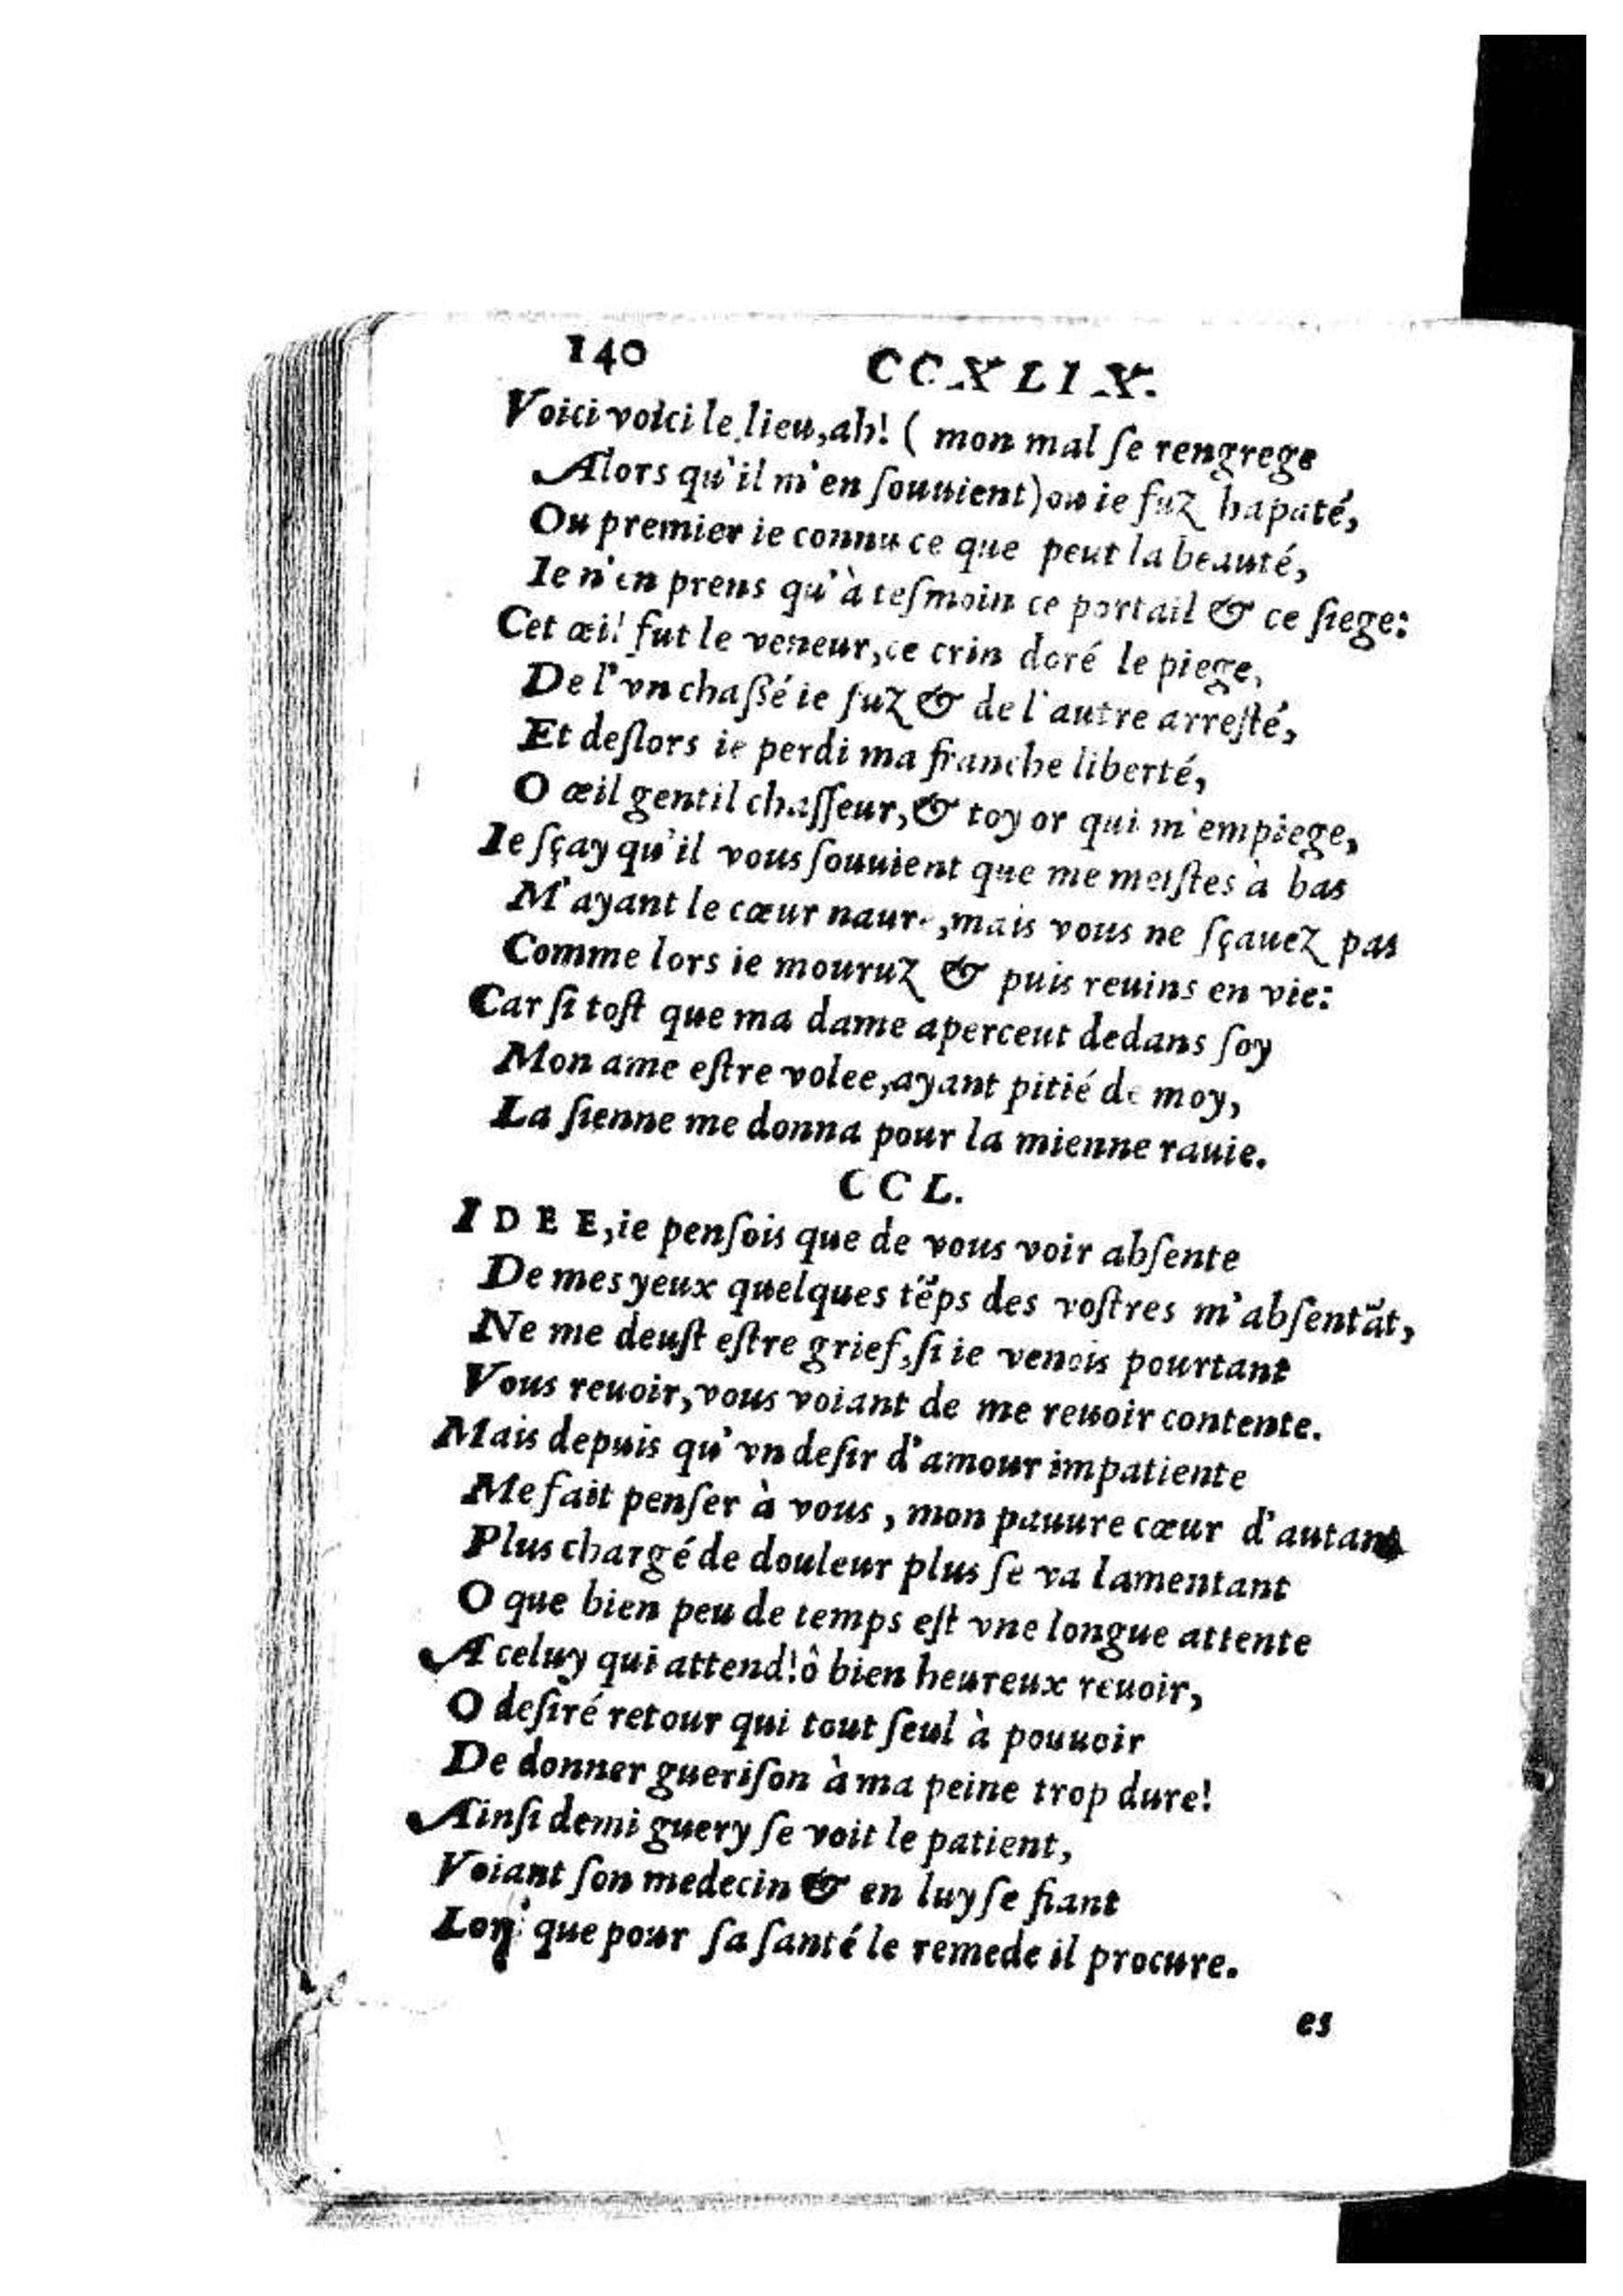 140 CCXLIX.
Voici voici le lieu, ah! ( mon mal ſe rengrege
Alors qu'il m'en ſouuient) ou ie fuz hapaté,
Ou premier ie connu ce que peut la beauté,
Ie n'en prens qu'à teſmoin ce portail & ce ſiege:
Cet œil fut le veneur, ce crin doré le piege,
De l'vn chaßé ie fuz & de l'autre arreſté,
Et deſlors ie perdi ma franche liberté,
O œil gentil chaſſeur, & toy or qui m'empiege,
Ie ſçay qu'il vous ſouuient que me meiſtes à bas
M'ayant le cœur nauré, mais vous ne ſçauez pas
Comme lors ie mouruz & puis reuins en vie:
Car ſi toſt que ma dame aperceut dedans ſoy
Mon ame eſtre volee, ayant pitié de moy,
La ſienne me donna pour la mienne rauie.
CCL.
IDEE, ie penſois que de vous voir abſente
De mes yeux quelques tẽps des voſtres m'abſentãt,
Ne me deuſt eſtre grief, ſi ie venois pourtant
Vous reuoir, vous voiant de me reuoir contente.
Mais depuis qu'vn deſir d'amour impatiente
Me fait penſer à vous, mon pauure cœur d'autant
Plus chargé de douleur plus ſe va lamentant
O que bien peu de temps eſt vne longue attente
A celuy qui attend! ô bien heureux reuoir,
O deſiré retour qui tout ſeul à pouuoir
De donner gueriſon à ma peine trop dure!
Ainſi demi guery ſe voit le patient,
Voiant ſon medecin & en luy ſe fiant
que pour ſa ſanté le remede il procure.
es